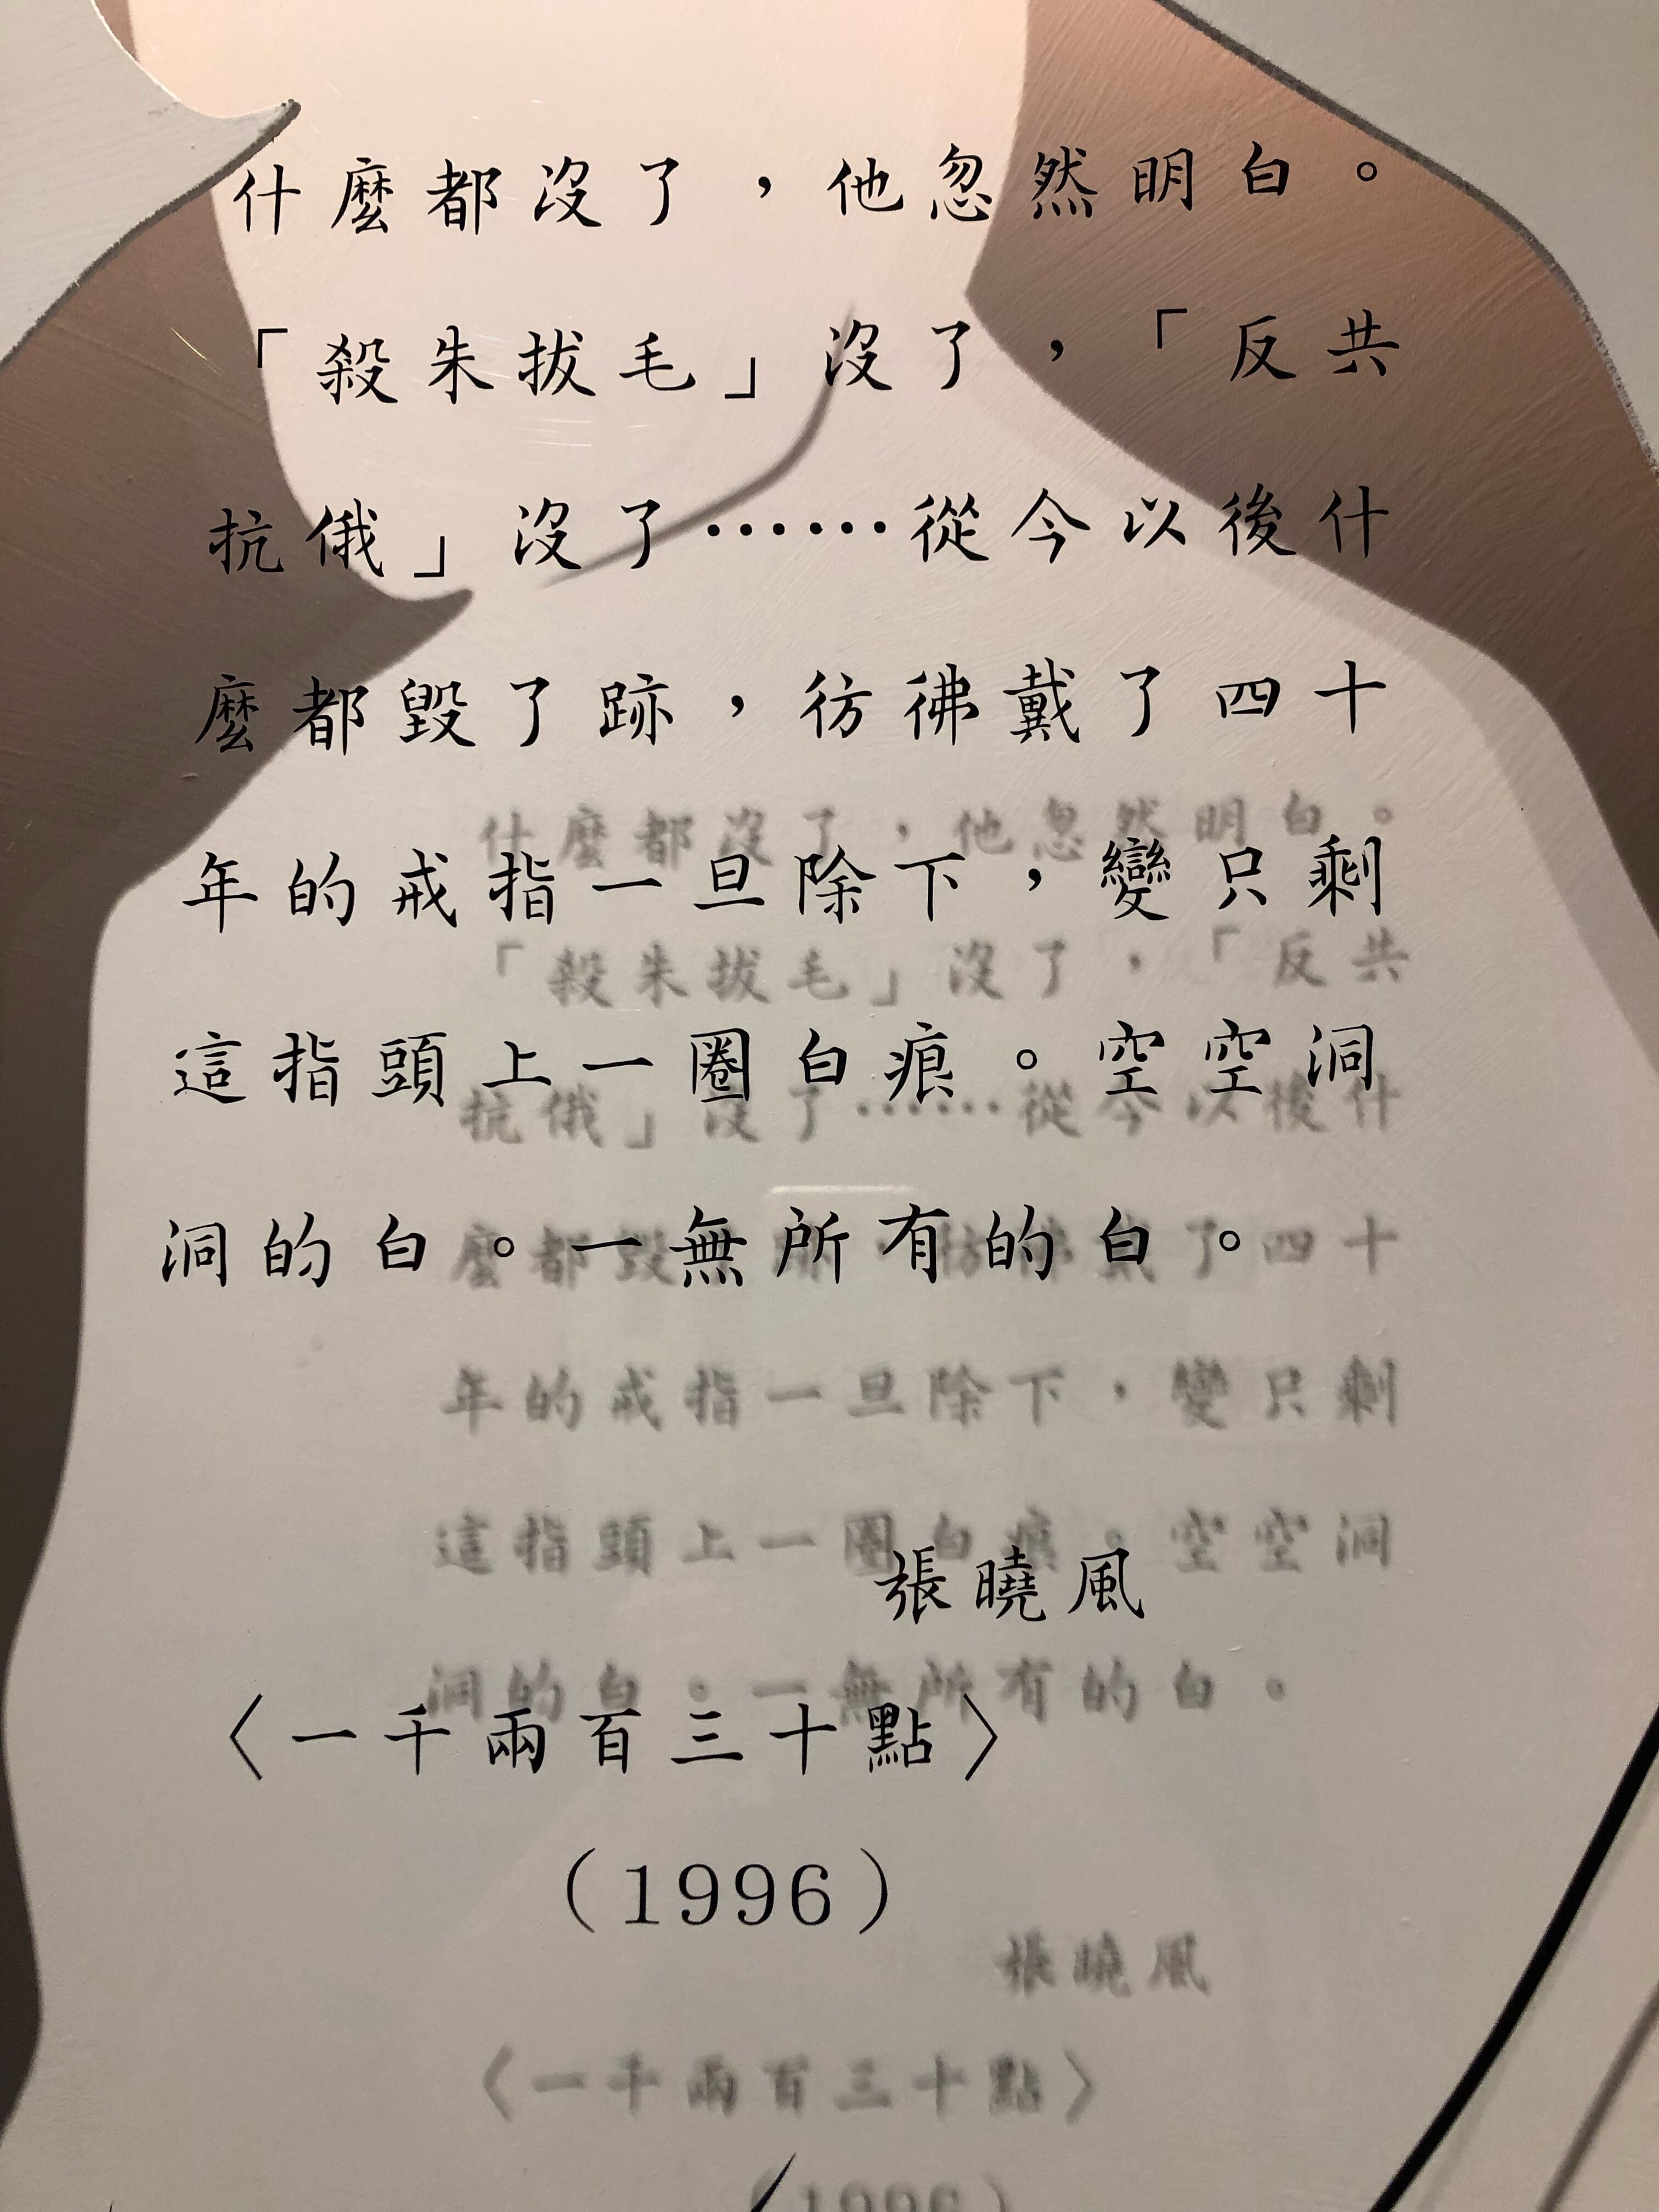 什麼都沒了，他忽然明白。
「殺朱拔毛」沒了，「反共
抗俄」沒了⋯⋯從今以後什
麼都毀了跡，彷彿戴了四十
年的戒指一旦除下，變只剩
這指頭上一圈白痕。空空洞
洞的白。一無所有的白。
張曉風
〈一千兩百三十點〉
（1996）